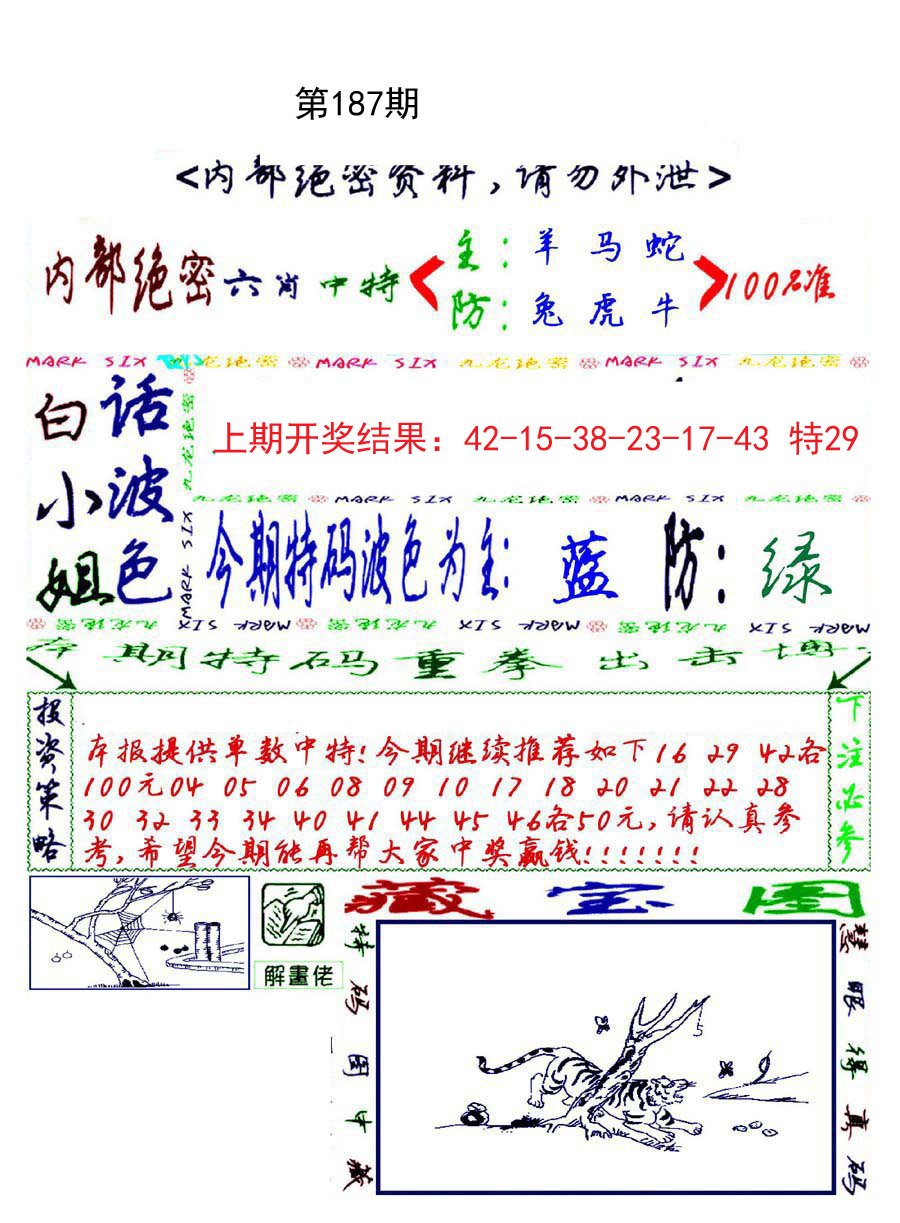 第187期
<内部绝密资料,请勿外泄>
内部绝密六肖中特
主:羊 马 蛇
防:兔 虎 牛
100%准
MARK SIX 九龙绝密 MARK SIX 九龙绝密 MARK SIX 九龙绝密
白小姐
话波色
九龙绝密
MARK SIX
上期开奖结果：42-15-38-23-17-43 特29
九龙绝密 MARK SIX 九龙绝密 MARK SIX 九龙绝密
今期特码波色为主: 蓝 防: 绿
九龙绝密 MARK SIX 九龙绝密 MARK SIX 九龙绝密 MARK SIX
本期特码重拳出击博
投资策略
本报提供单数中特!今期继续推荐如下16 29 42各
100元04 05 06 08 09 10 17 18 20 21 22 28
30 32 33 34 40 41 44 45 46各50元,请认真参
考,希望今期能再帮大家中奖赢钱!!!!!!!
下注必参
解畫佬
藏宝图
特码图中藏
慧眼得真码
5